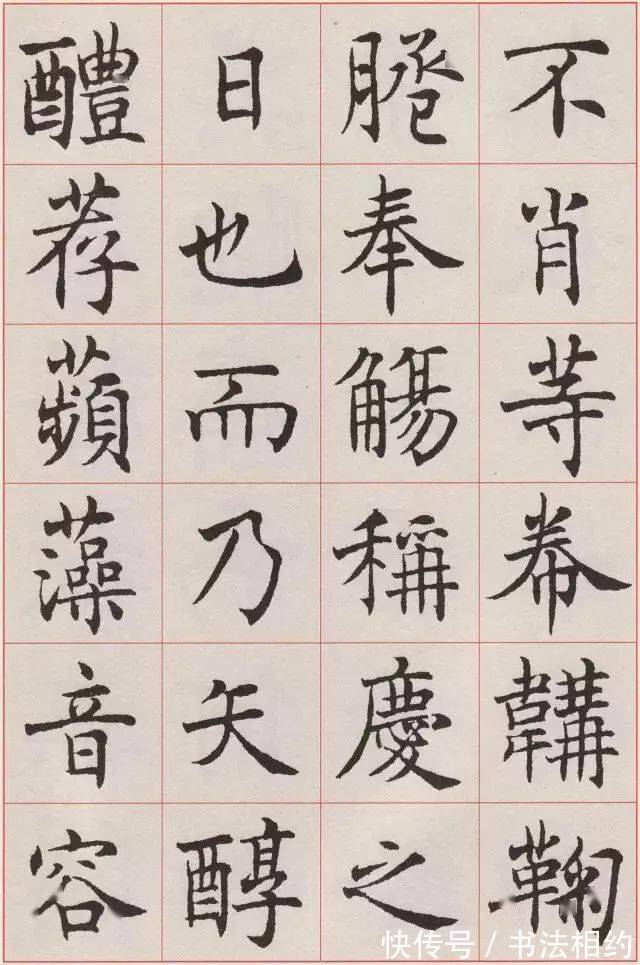 不肖等帣韝鞠
𦜕奉觴稱慶之
日也而乃矢醇
醴荐蘋藻音容
快传号/书法相约